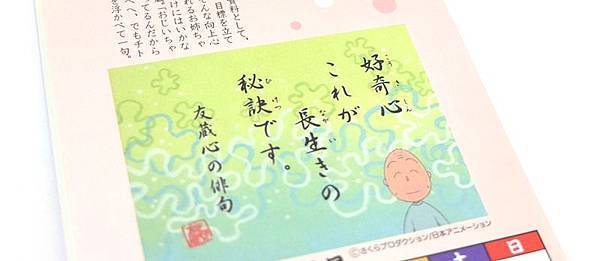 資料として、
目標を立て
そんな向上心
れるお姉ちゃ
けにはいかな
「おじいちゃ
ってるんだから
へへ、でもチト
を浮かべて一句。
好奇心
これが
長生きの
秘訣です。
友蔵心の俳句
©さくらプロダクション/日本アニメーション
土
日